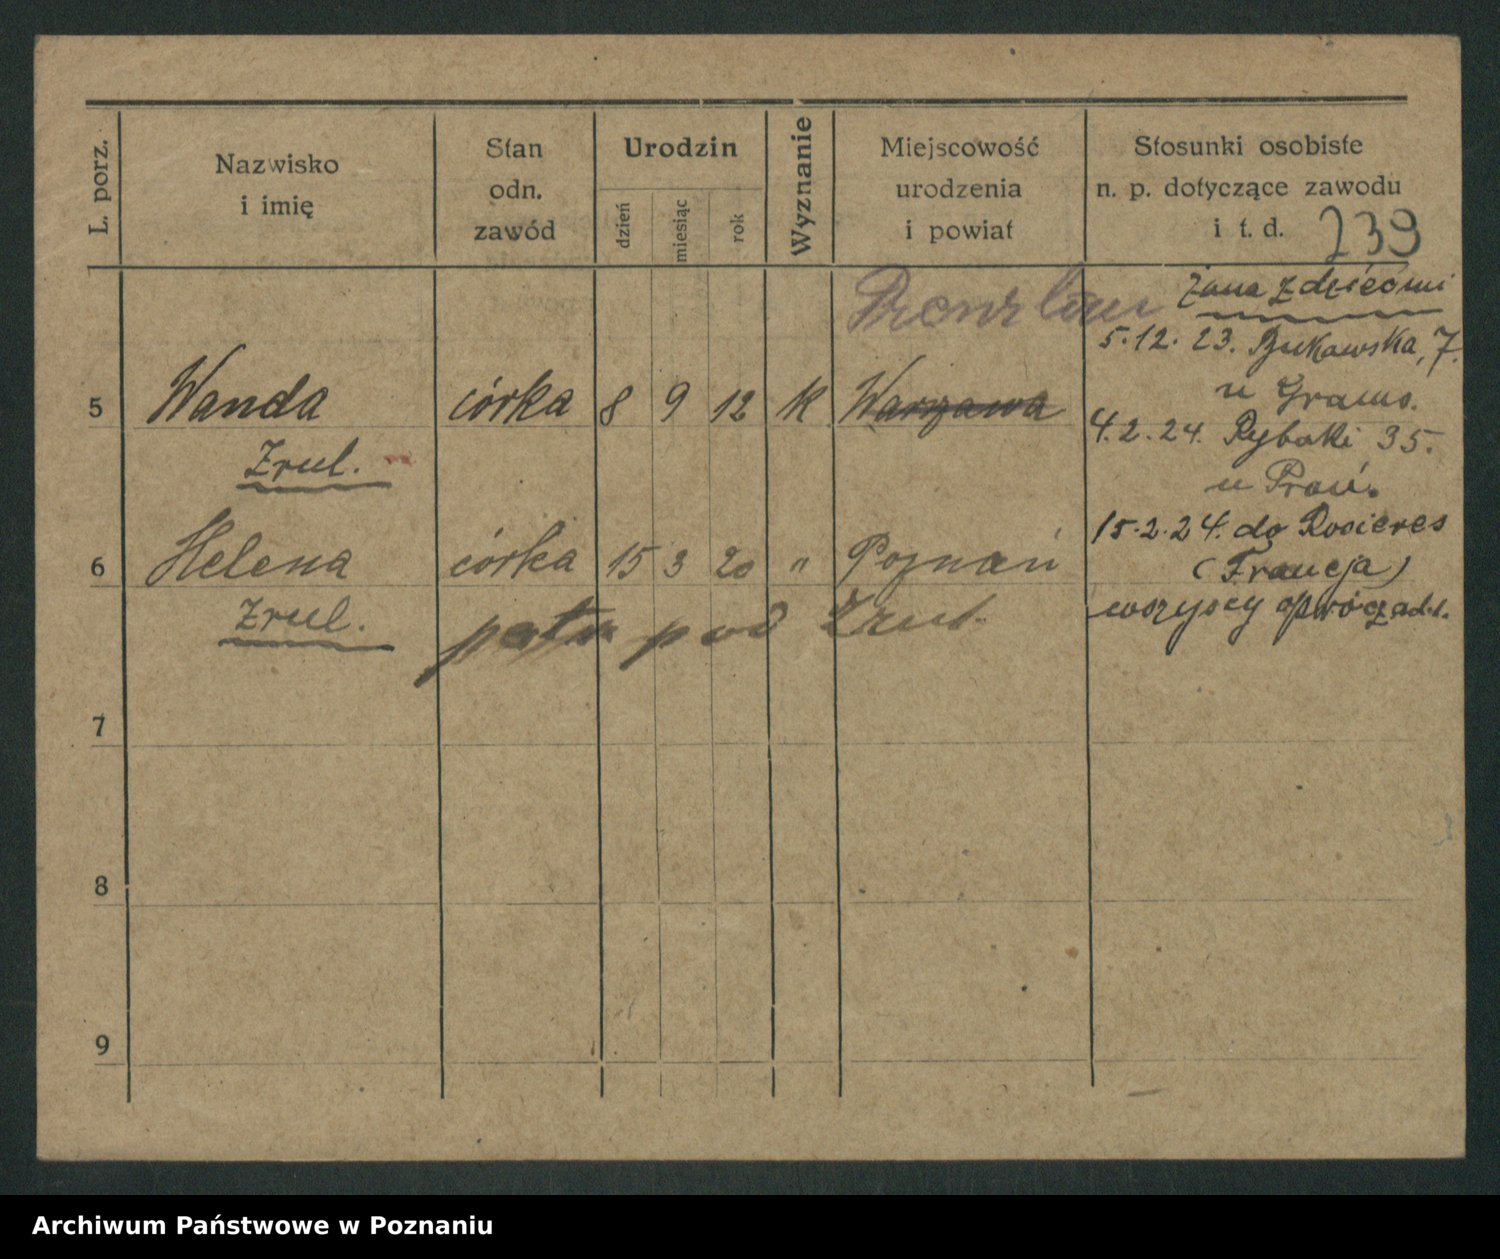 L. porz.
Nazwisko
i imię
Stan
odn.
zawód
Urodzin
dzień
miesiąc
rok
Wyznanie
Miejscowość
urodzenia
i powiat
Stosunki osobiste
n. p. dotyczące zawodu
i t. d.
239
żona z dziećmi
5.12.23. Bukowska, 7.
u
5 Wanda córka 8 9 12 k Warszawa
4.2.24. Rybaki 35.
Zrul.
u
15.2.24. do Rosieres
6 Helena córka 15 3 20 " Poznań
(Francja)
Zrul.
wszyscy oprócz ad.1.
patrz pod Zrul.
7
8
9
Archiwum Państwowe w Poznaniu